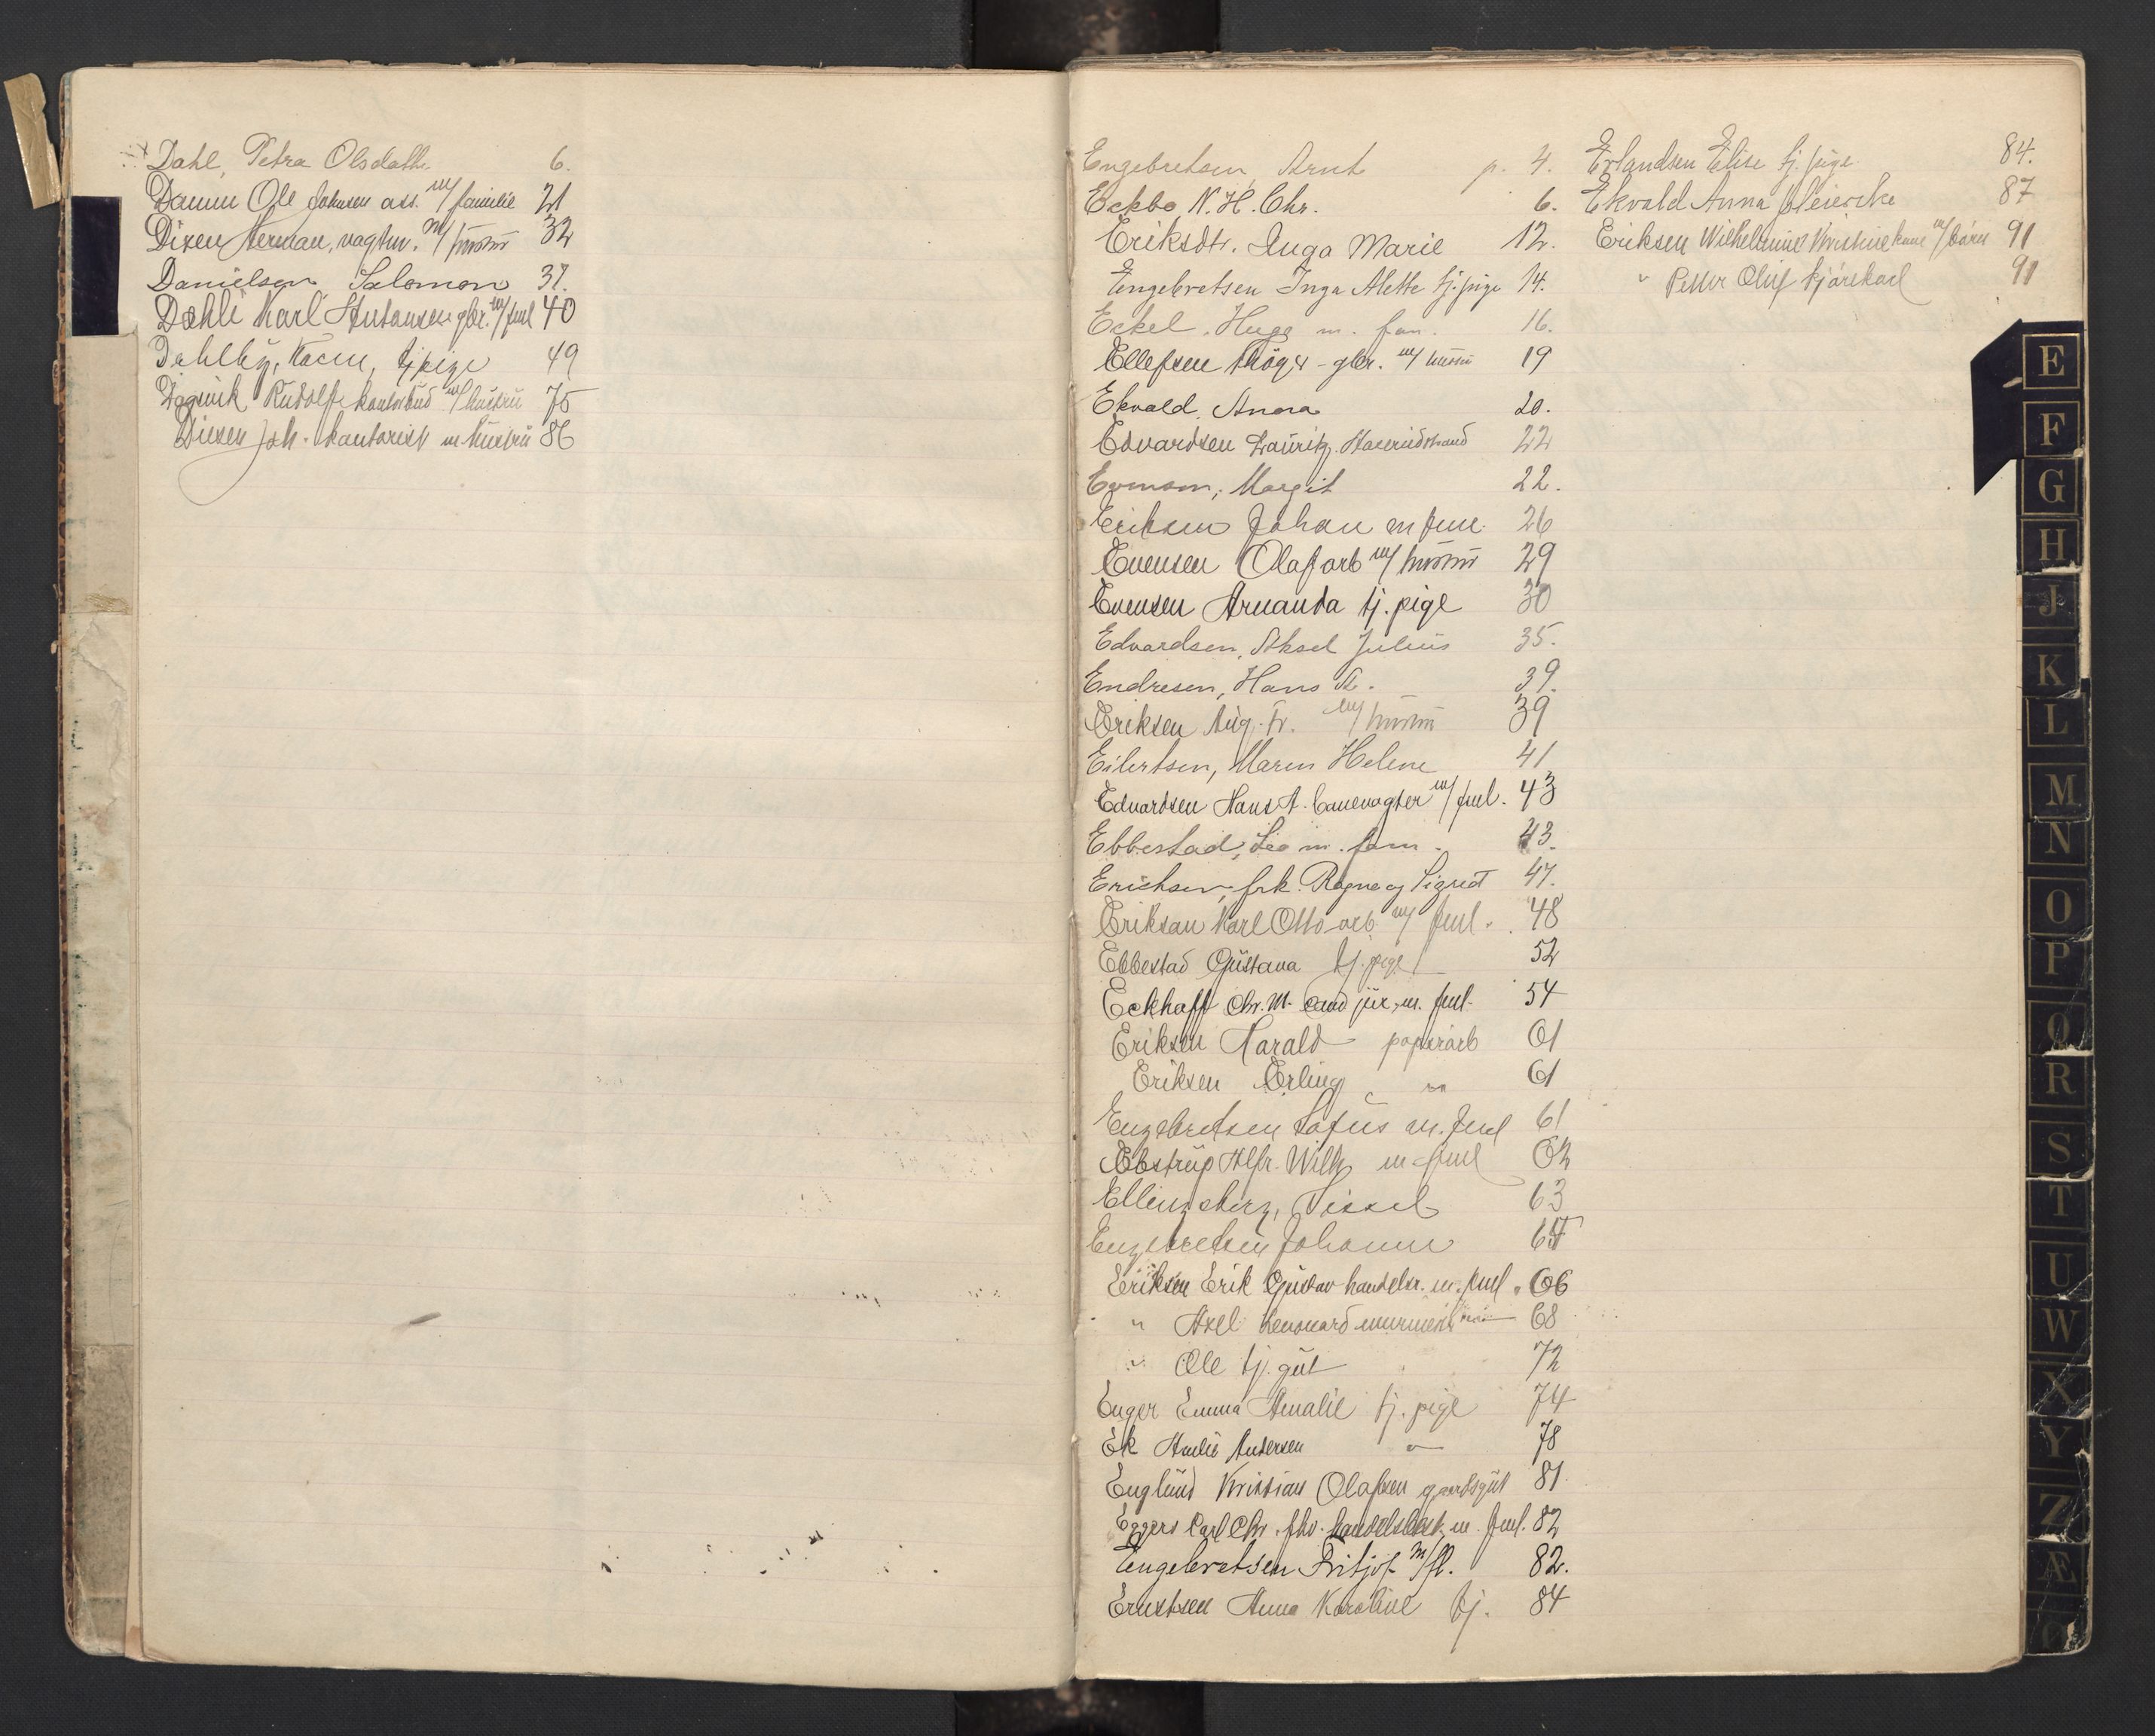 Dahl, Petra Olsdatter 6.
Damm Ole Johnsen ass. m/ familie 21
Dixen Herman, vagtm. m/ hustru 32
Danielsen Salomon 37.
Dæhli Karl gbr. m/ fml 40
Dahlby, Karen, tj pige 49
Rudolf kontorbud m/ hustru 75
Joh. kontorist m hustru 86
Engebretsen, Arnt p. 4.
Eckbo, N. H. Chr. 6.
Eriksdtr. Inga Marie 12.
Engebretsen Inga Alette tj. pige 14.
Eckel, Hugo m. fam. 16.
Ellefsen gbr. m/ hustru 19
Ekvald, Anna 20.
Edvardsen Lauritz 22
Margit 22.
Eriksen Johan m fml. 26
Evensen Olaf arb m/ hustru 29
Evensen Amanda tj. pige 30
Edvardsen, Aksel Julius 35.
Endresen, Hans A. 39.
Eriksen Aug. Fr. m/ hustru 39
Eilertsen, Maren Helene 41
Edvardsen Hans A. banevogter m/ fml. 43
Ebbestad, Leo m. fam. 43.
Erichsen, frk. Ragna og Sigrid 47.
Eriksen Karl Otto arb m/ fml. 48
Ebbestad Gustava tj. pige 52
Eckhoff Chr. M. cand jur, m. fml. 54
Eriksen Harald papirarb 61
Eriksen Erling " 61
Engebretsen Lofus m. fml 61
Ebstrup Alfr. Wilh m fml 62
Ellingsberg, Sissel 63
Engebretsen Johanne 65
Eriksen Erik Gustav handelsr. m. fml. 66
" Axel 68
" Ole tj. gut 72
Enger Emma Amalie tj. pige 74
Ek Andersen " 78
Englund Kristian Olafsen gaardsgut 81
Eggers Carl Chr. fhv. m. fml. 82
Engebretsen Fritjof m/ fl. 82.
Ernstsen Anna Karoline tj. 84
Erlandsen Elise tj. pige 84.
Ekvald Anna Meierske 87
Eriksen Wilhelmine Kristine kone m/ børn 91
" Petter Oluf kjørekarl 91
E
F
G
H
J
K
L
M
N
O
P
Q
R
S
T
U
W
X
Y
Z
Æ
Ø